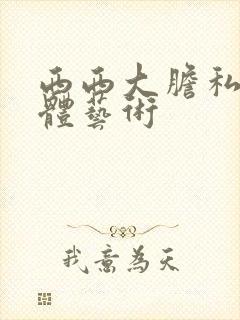 西西大膽私
體藝術
我意為天